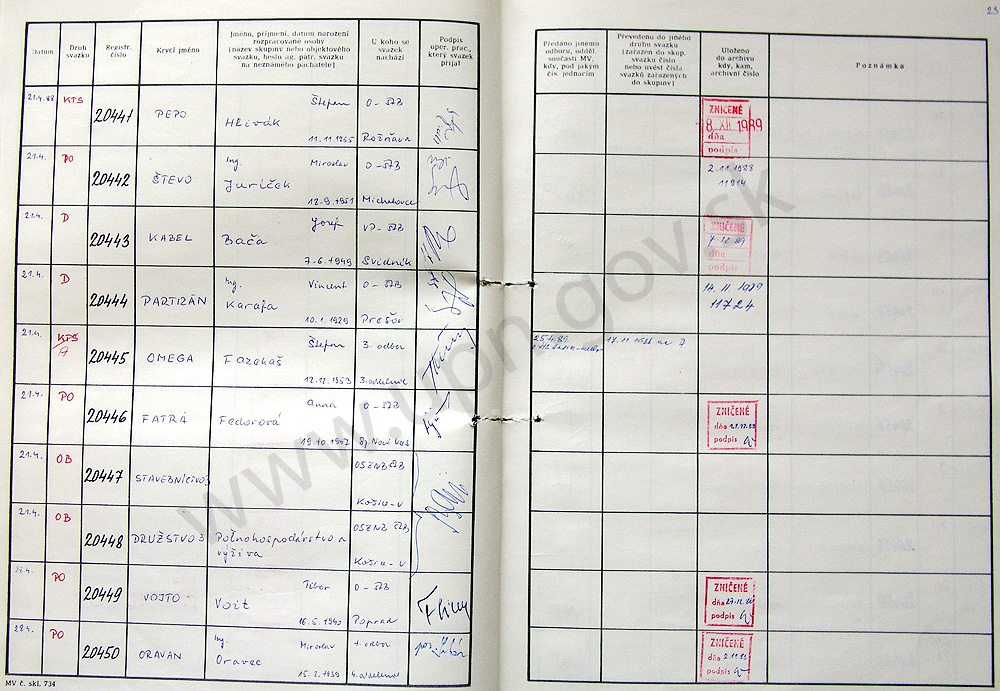 23
Datum
Druh svazku
Registr. číslo
Krycí jméno
Jméno, příjmení, datum narození
rozpracované osoby
(název skupiny nebo objektového
svazku, heslo ag. pátr. svazku
na neznámého pachatele)
U koho se
svazek
nachází
Podpis
oper. prac.,
který svazek
přijal
Předáno jinému
odboru, odděl.
součásti MV,
kdy, pod jakým
čís. jednacím
Převedeno do jiného
druhu svazku
(zařazen do skup.
svazku číslo
nebo uvést čísla
svazků zařazených
do skupiny)
Uloženo
do archivu
kdy, kam,
archivní číslo
Poznámka
21.4.88 KTS 20441 PEPO Štefan Hlivák 11.11.1955 O-ŠtB Rožňava
ZNIČENÉ
8. XII. 1989
dňa
podpis
21.4. PO 20442 ŠTEVO Ing. Miroslav Juriček 18.9.1951 O-ŠtB Michalovce
2.11.1988
11914
21.4. D 20443 KABEL Jozef Bača 7.6.1949 VP-ŠtB Svidník
ZNIČENÉ
dňa
podpis
21.4. D 20444 PARTIZÁN Ing. Vincent Karafa 10.1.1929 O-ŠtB Prešov
14.11.1989
11724
21.4. KTS A 20445 OMEGA Štefan Fazekaš 12.12.1953 3. odbor 3. oddelenie
25.4.89
21.4. PO 20446 FATRA Anna Fedorová 19.10.1947 O-ŠtB Sp. Nová Ves
ZNIČENÉ
dňa
podpis
21.4. OB 20447 STAVEBNÍCTVO OSZNB ŠtB Košice-V
21.4. OB 20448 DRUŽSTVO 3 Poľnohospodárstvo a
výživa OSZNB ŠtB Košice-V
28.4. PO 20449 VOJTO Tibor Voit 16.5.1940 O-ŠtB Poprad
ZNIČENÉ
dňa
podpis
28.4. PO 20450 ORAVAN Ing. Miroslav Oravec 15.2.1959 1. odbor 4. oddelenie
ZNIČENÉ
dňa
podpis
MV č. skl. 734
www.upn.gov.sk